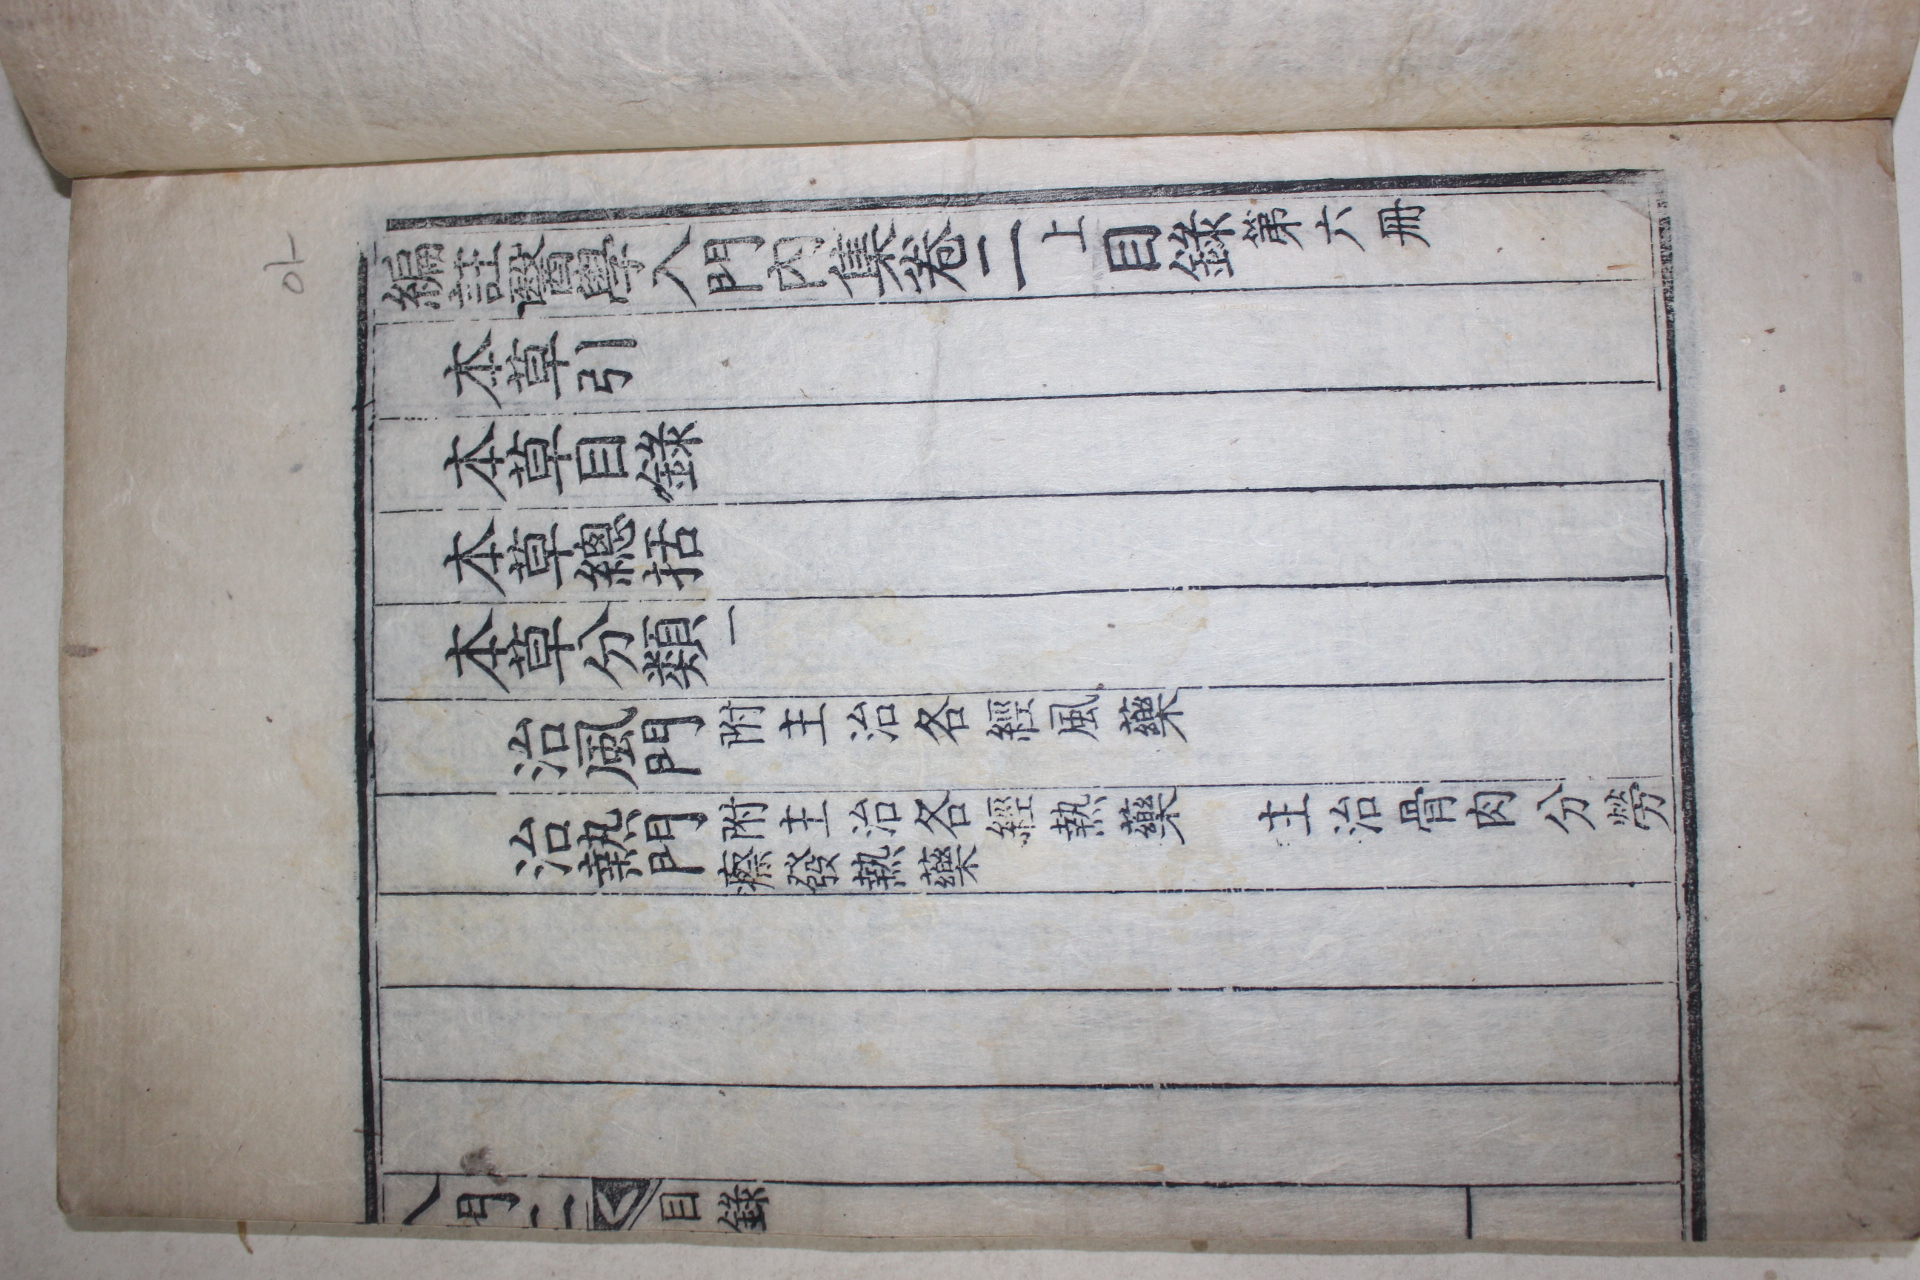 編註醫學入門內集卷二上目錄第六冊
本草引
本草目錄
本草總括
本草分類一
治風門附主治各經風藥
治熱門附主治各經熱藥 主治骨肉分勞
瘵發熱藥
入門二 目錄
아